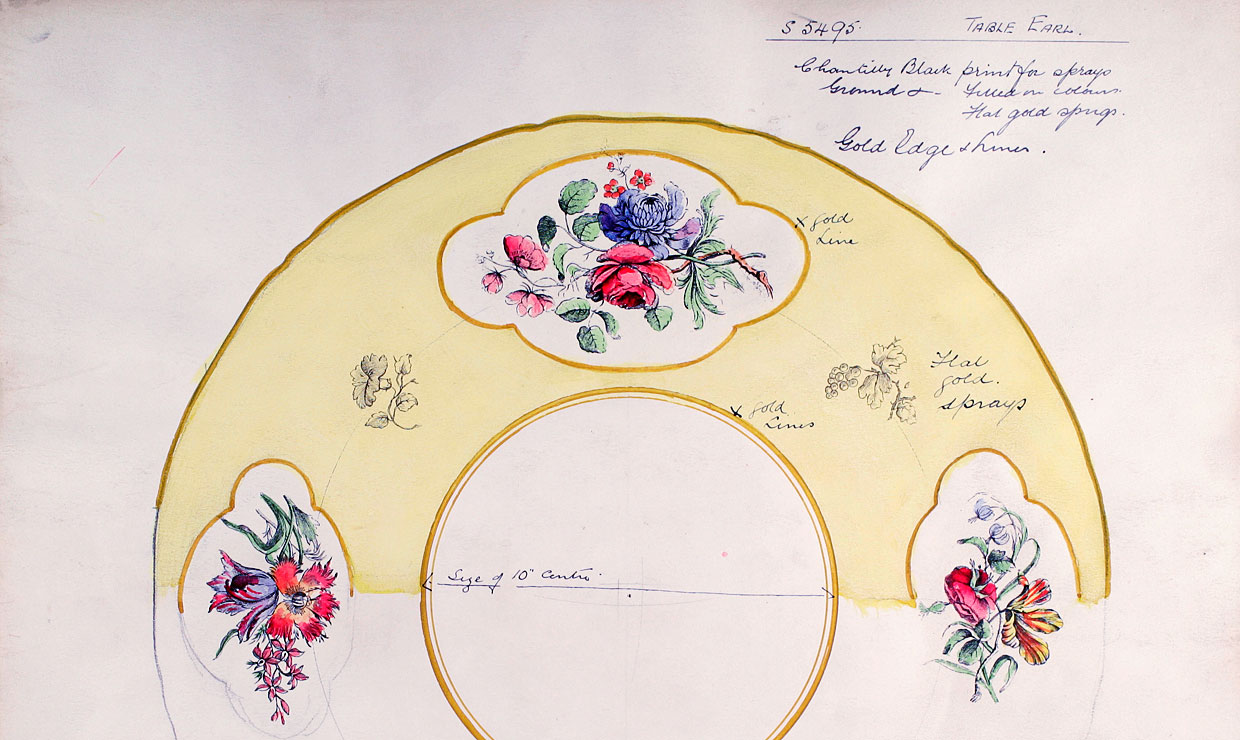 S 5495. TABLE EARL.
Chantilly Black print for sprays
Ground & - Filled in colours.
Flat gold sprigs.
Gold Edge & Lines.
x gold
Line
Flat
gold.
sprays
x gold
Lines
Size of 10" Centre.